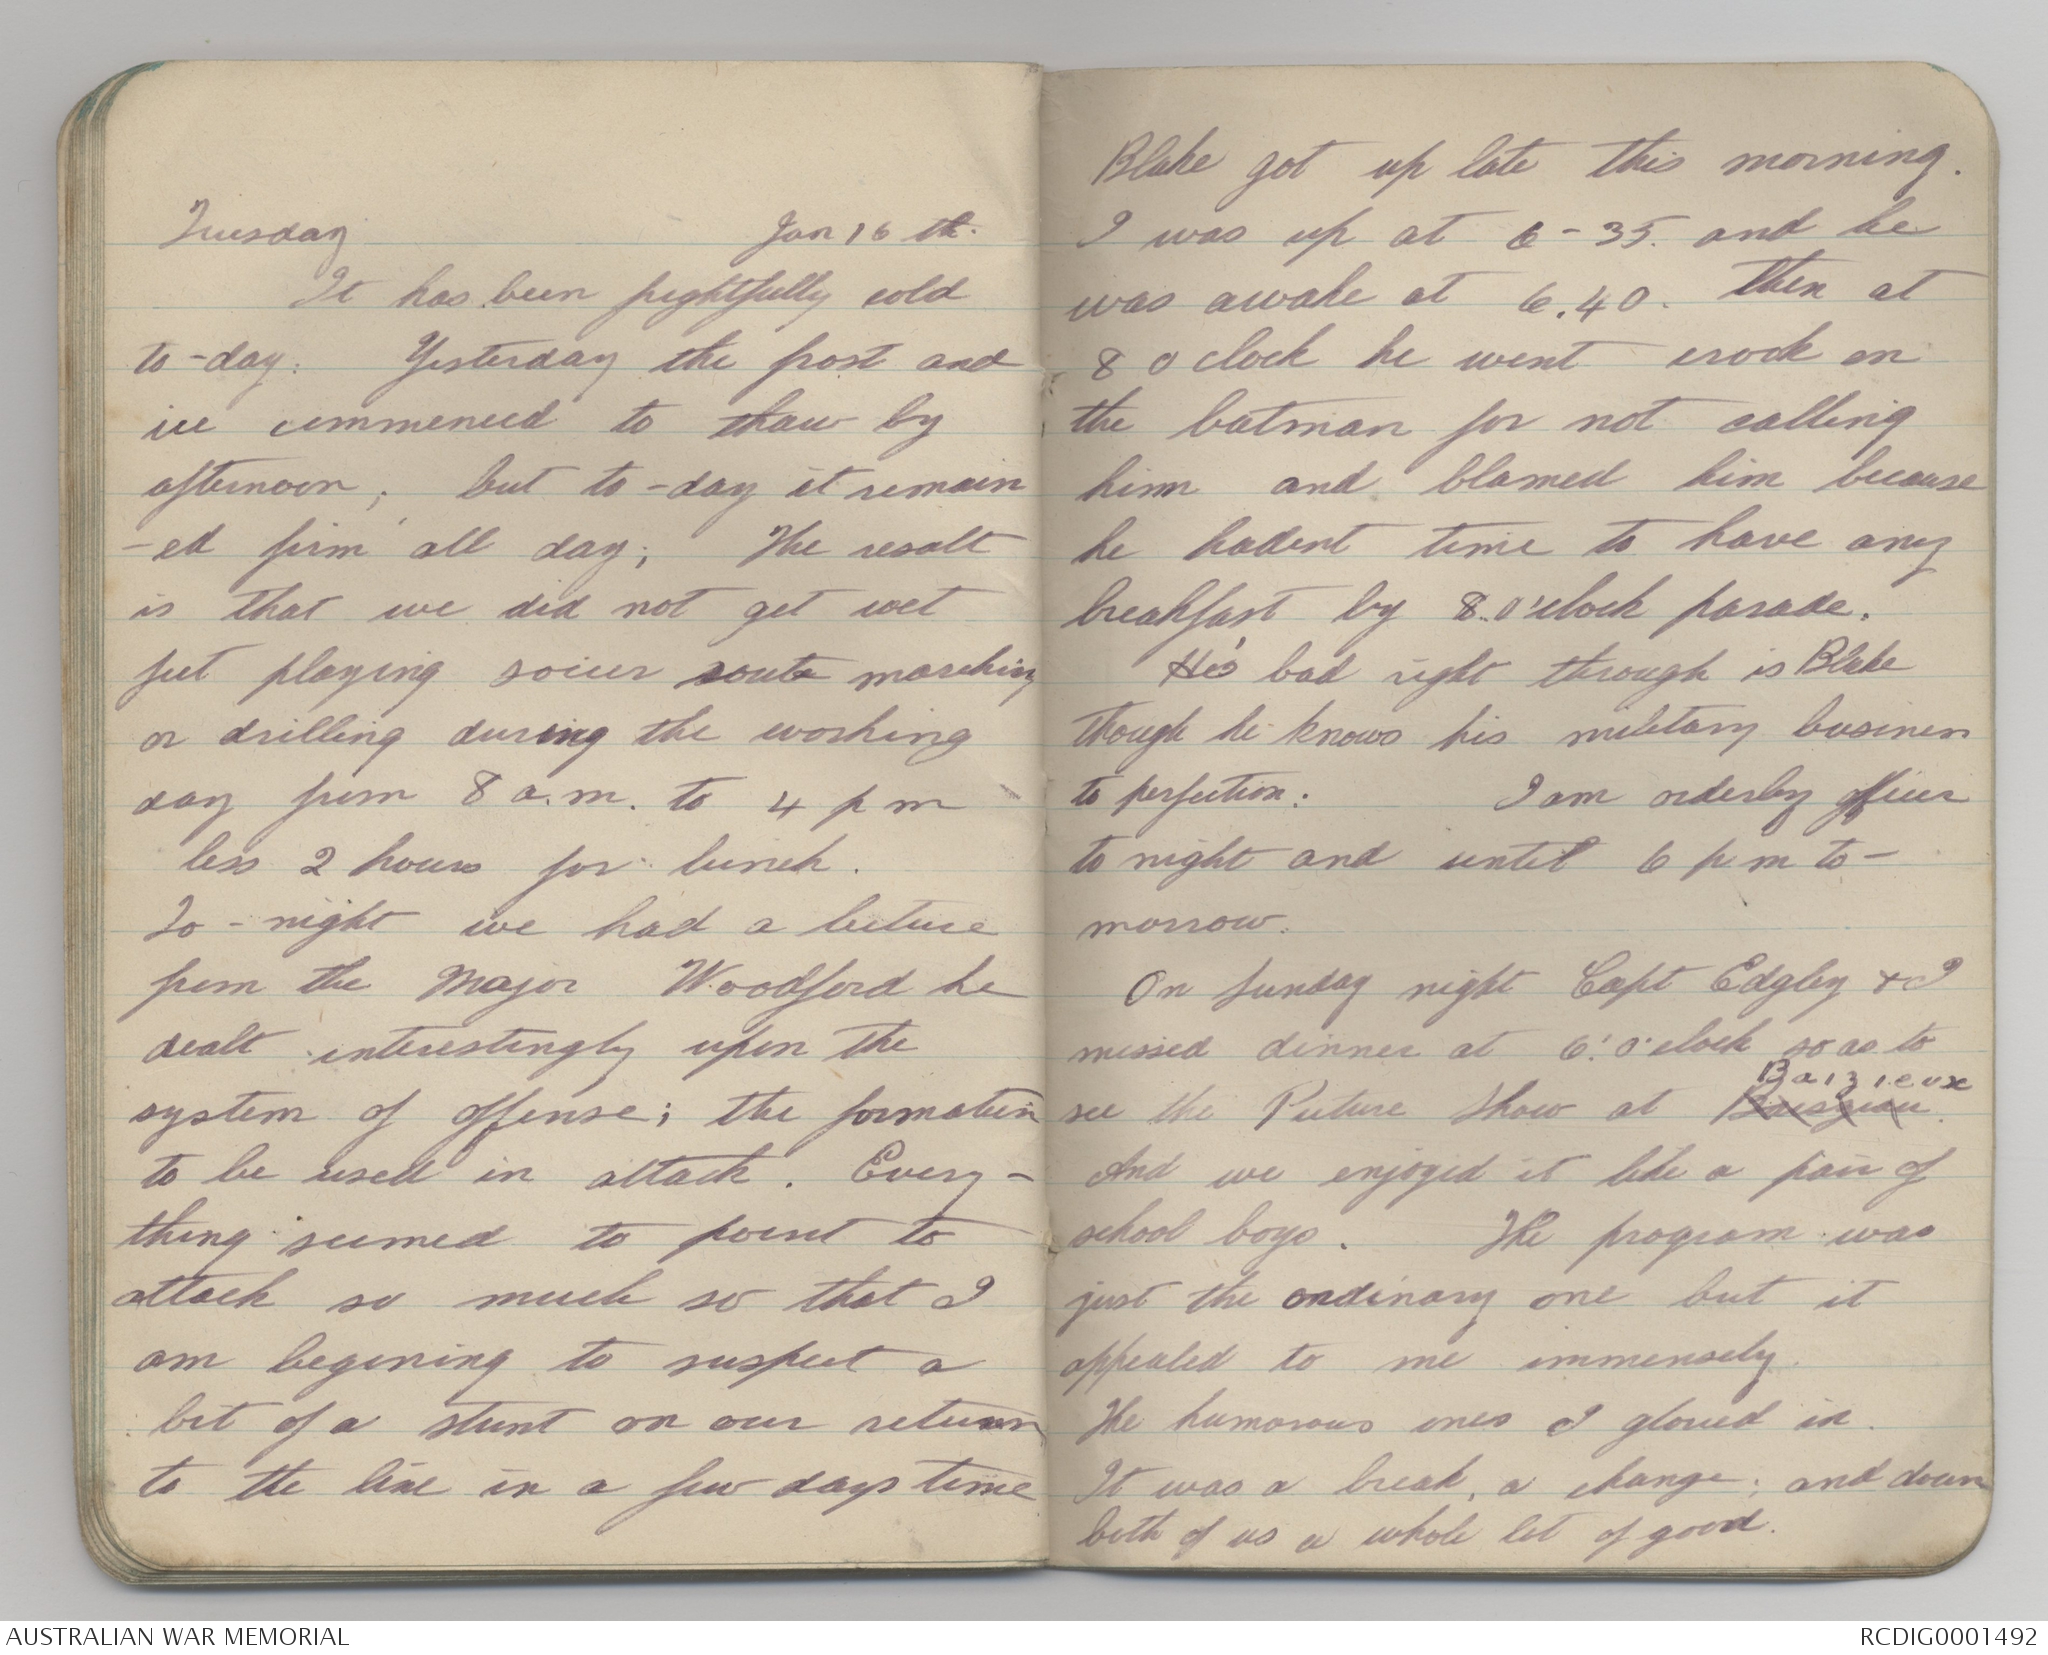 Tuesday Jan 16 th.
It has been frightfully cold
to-day. Yesterday the frost and
ice commenced to thaw by
afternoon; but to-day it remain
-ed firm all day; The result
is that we did not get wet
feet playing soccer route marching
or drilling during the working
day from 8 a.m. to 4 p m
less 2 hours for lunch.
To-night we had a lecture
from the Major Woodford he
dealt interestingly upon the
system of offense; the formation
to be used in attack. Every-
thing seemed to point to
attack so much so that I
am begining to suspect a
bit of a stunt on our return
to the line in a few days time
Blake got up late this morning.
I was up at 6-35. and he
was awake at 6.40. Then at
8 o clock he went crook on
the batman for not calling
him and blamed him because
he hadent time to have any
breakfast by 8 o'clock parade.
He's bad right through is Blake
though he knows his military business
to perfection. I am orderly officer
to night and until 6 p m to-
morrow.
On Sunday night Capt Edgley & I
missed dinner at 6 o'clock so as to
Baizieux
see the Picture Show at
And we enjoyed it like a pair of
school boys. The program was
just the ordinary one but it
appealed to me immensely.
The humorous ones I gloried in.
It was a break, a change; and done
both of us a whole lot of good.
AUSTRALIAN WAR MEMORIAL RCDIG0001492